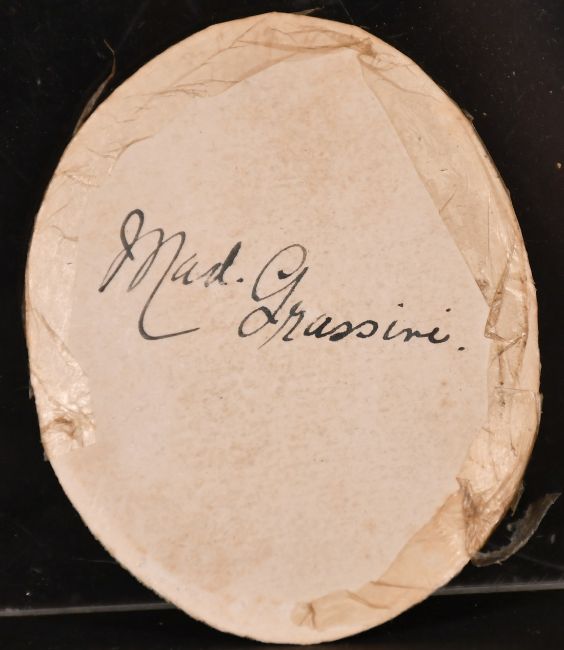 Mad. Grassini.